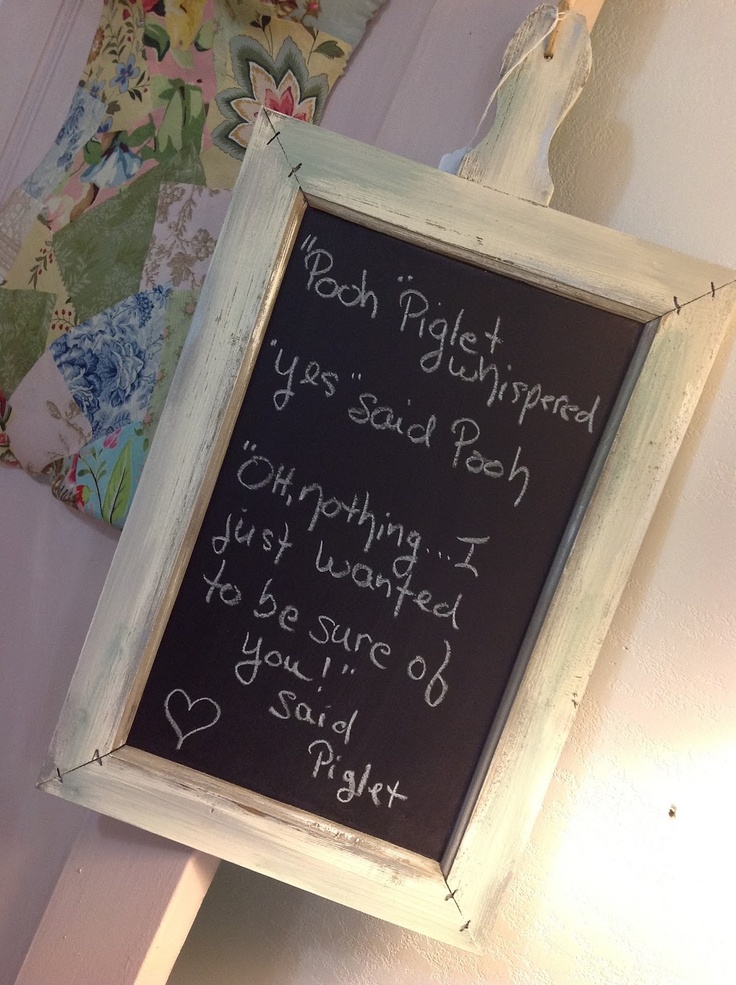 "Pooh" Piglet
whispered
"yes" said Pooh
"OH, nothing...I
just wanted
to be sure of
you!"
said
Piglet